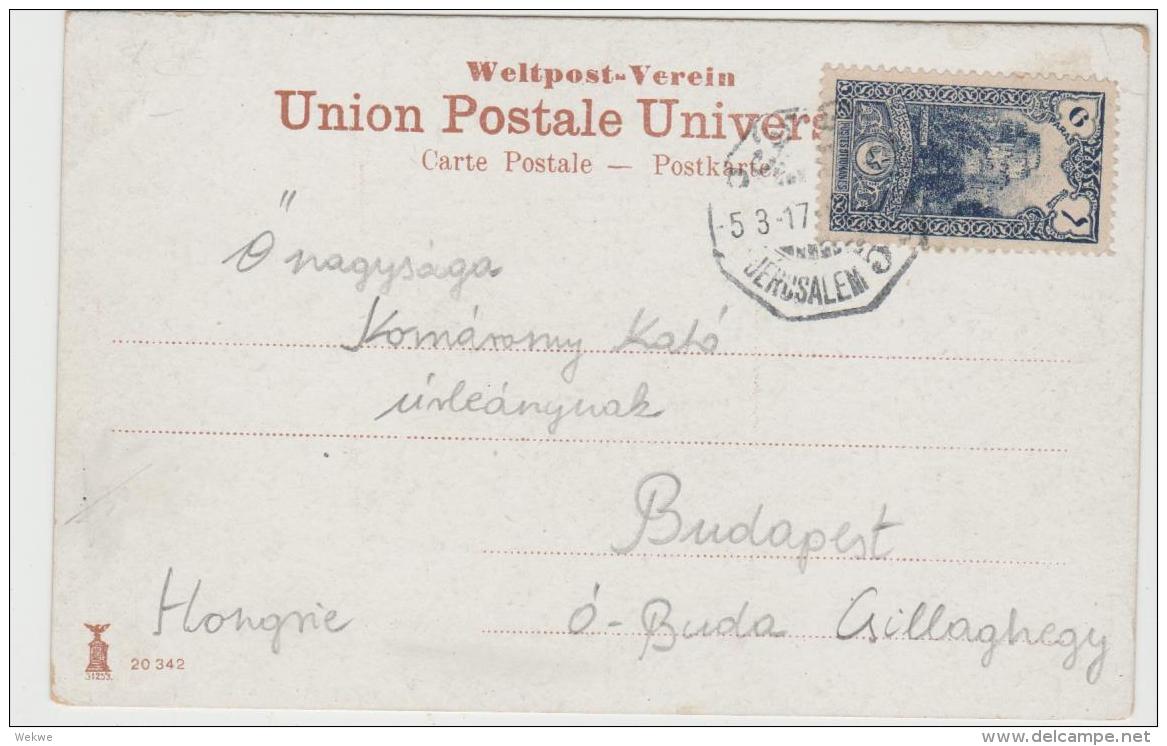 Weltpost-Verein
Union Postale Univers
Carte Postale — Postkarte
-5 3-17
JERUSALEM
POSTES OTTOMANES
Ő nagysága
Komáromy Kató
úrleánynak
Budapest
Ó-Buda Csillaghegy
Hongrie
31255.
20 342
Wekwe
www.delcampe.net